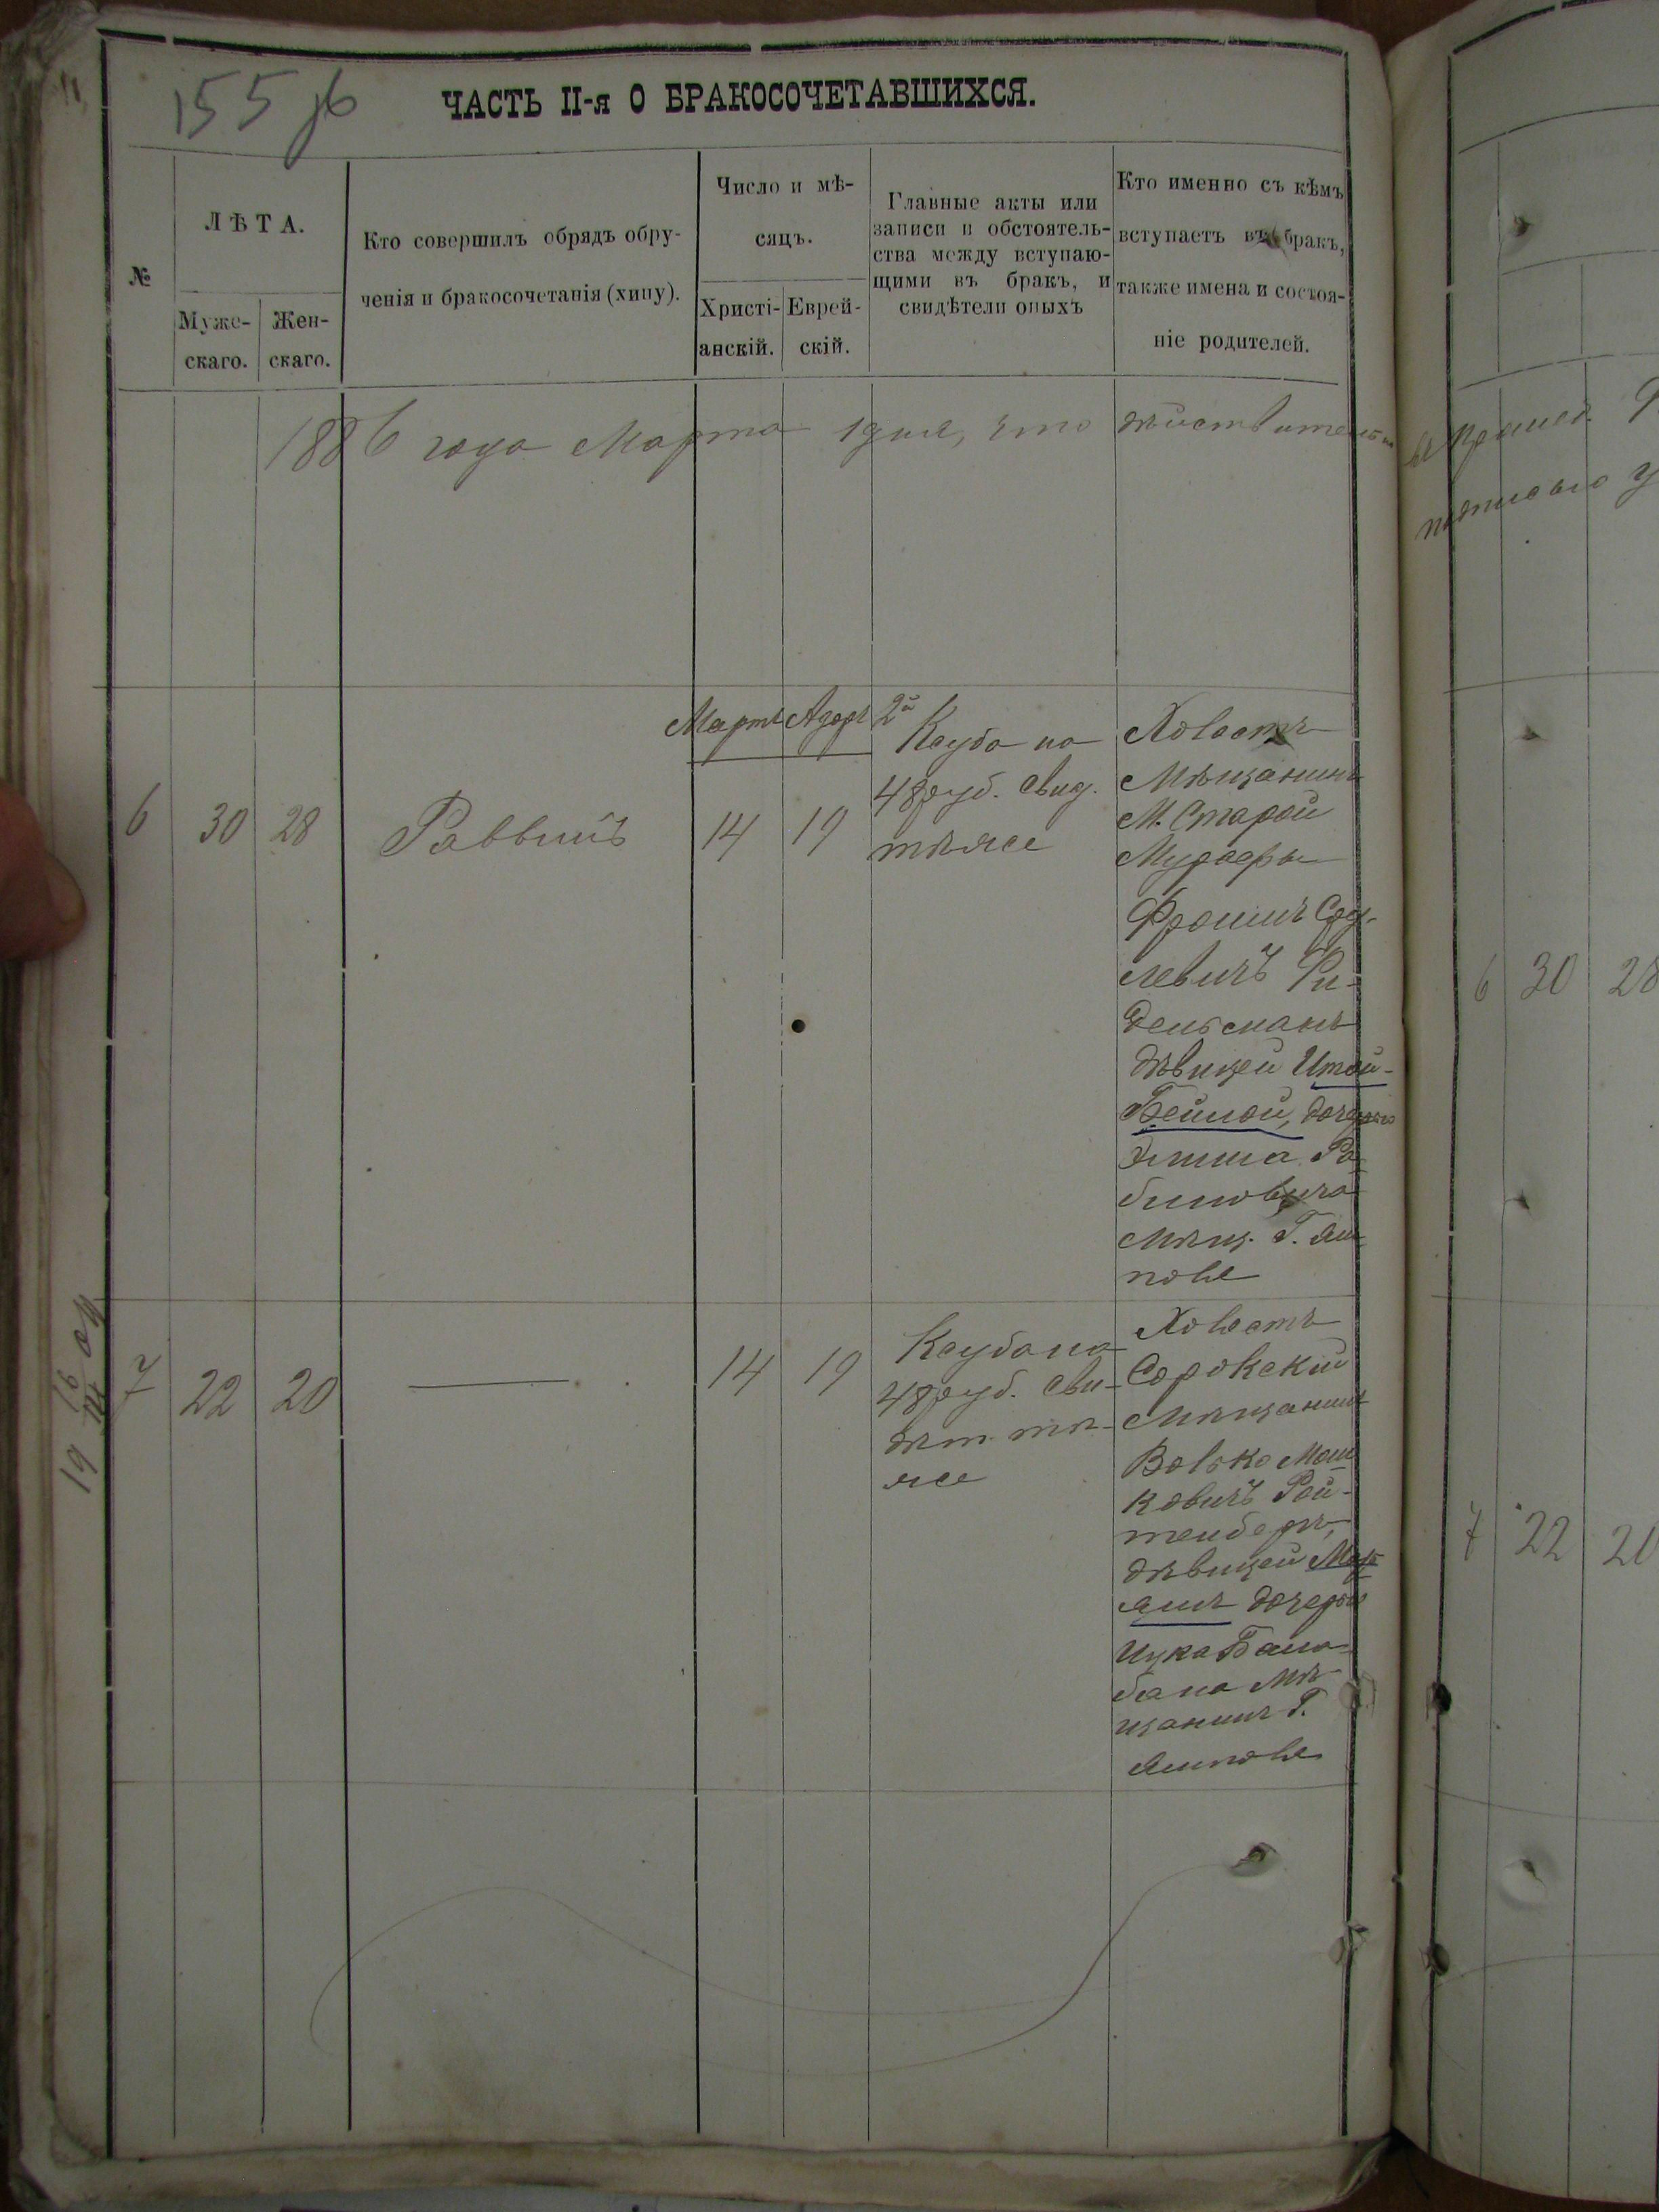 155 об
ЧАСТЬ II-я О БРАКОСОЧЕТАВШИХСЯ.
№
ЛѢТА.
Муже-
скаго.
Жен-
скаго.
Кто совершилъ обрядъ обру-
ченія и бракосочетанія (хипу).
Число и мѣ-
сяцъ.
Христі-
анскій.
Еврей-
скій.
Главные акты или
записи и обстоятель-
ства между вступаю-
щими въ бракъ, и
свидѣтели оныхъ
Кто именно съ кѣмъ
вступаетъ въ бракъ,
также имена и состоя-
ніе родителей.
1886 года Марта 1 дня, что дѣйствительн
Мартъ Адаръ 2й
6 30 28
Раввинъ
14 19
Ксуба на
48 руб. Свид.
тѣже
Холостъ
Мѣщанинъ
М. Старой
Мурафы
Фроимъ Сру-
левичъ
дельманъ
дѣвицей Итой-
Бейлой, дочерью
Ра-
биновича
Мѣщ. Г. Ям-
поля
7 22 20
14 19
Ксуба на
48 руб. Сви-
дѣт. тѣ-
же
Холостъ
Сорокскій
Мѣщанинъ
Волько Мош-
ковичъ Рой-
тенберъ,
дѣвицей
дочерью
Ицка Бала-
бана Мѣ-
щанинъ Г.
Ямполя
подписью у
6 30 28
7 22 20